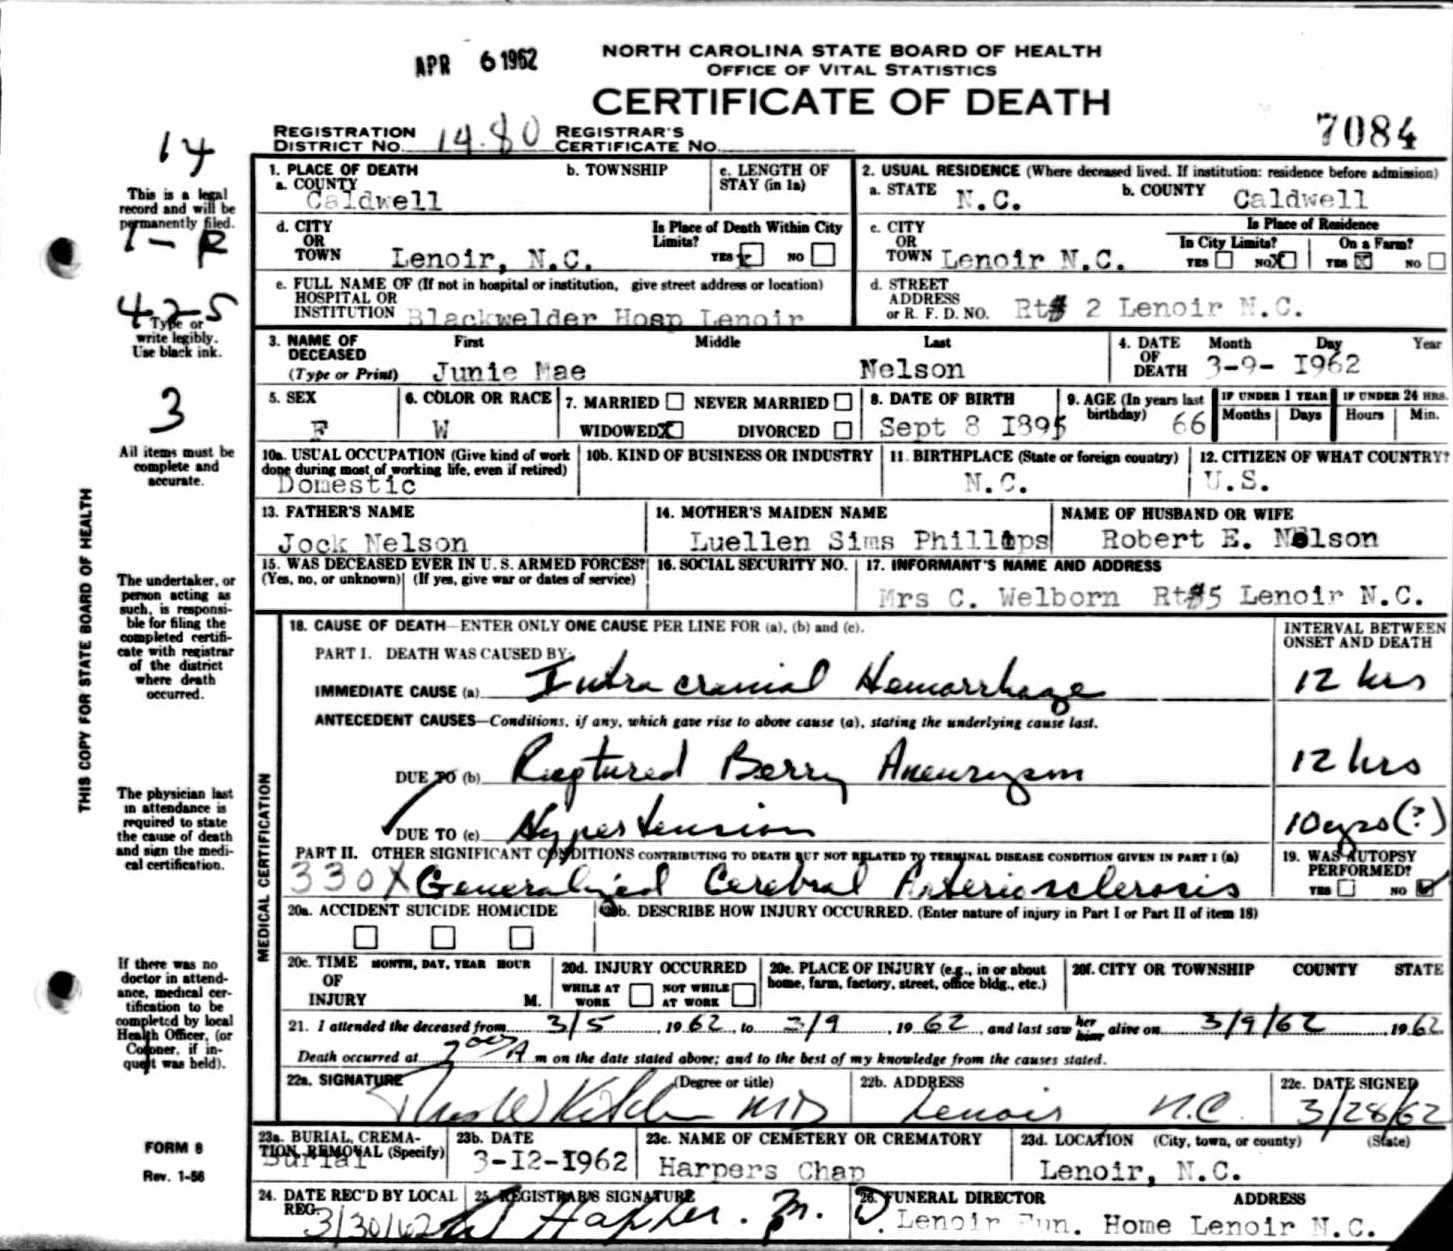 APR 6 1962
NORTH CAROLINA STATE BOARD OF HEALTH
OFFICE OF VITAL STATISTICS
CERTIFICATE OF DEATH
7084
REGISTRATION DISTRICT NO. 14.80 REGISTRAR'S CERTIFICATE NO.
14
This is a legal record and will be permanently filed.
1-R
425
Type or write legibly. Use black ink.
3
All items must be complete and accurate.
THIS COPY FOR STATE BOARD OF HEALTH
The undertaker, or person acting as such, is responsible for filing the completed certificate with registrar of the district where death occurred.
The physician last in attendance is required to state the cause of death and sign the medical certification.
If there was no doctor in attendance, medical certification to be completed by local Health Officer, (or Coroner, if inquest was held).
FORM 8
Rev. 1-56
1. PLACE OF DEATH
a. COUNTY Caldwell
b. TOWNSHIP
c. LENGTH OF STAY (in 1a)
2. USUAL RESIDENCE (Where deceased lived. If institution: residence before admission)
a. STATE N.C. b. COUNTY Caldwell
d. CITY OR TOWN Lenoir, N.C.
Is Place of Death Within City Limits? YES X NO
c. CITY OR TOWN Lenoir N.C.
Is Place of Residence
In City Limits? YES NO X On a Farm? YES X NO
e. FULL NAME OF (If not in hospital or institution, give street address or location) HOSPITAL OR INSTITUTION Blackwelder Hosp Lenoir
d. STREET ADDRESS or R. F. D. NO. Rt# 2 Lenoir N.C.
3. NAME OF DECEASED (Type or Print) First Middle Last
Junie Mae Nelson
4. DATE OF DEATH Month Day Year
3-9- 1962
5. SEX F
6. COLOR OR RACE W
7. MARRIED NEVER MARRIED WIDOWED X DIVORCED
8. DATE OF BIRTH Sept 8 1895
9. AGE (In years last birthday) 66
IF UNDER 1 YEAR Months Days
IF UNDER 24 HRS. Hours Min.
10a. USUAL OCCUPATION (Give kind of work done during most of working life, even if retired) Domestic
10b. KIND OF BUSINESS OR INDUSTRY
11. BIRTHPLACE (State or foreign country) N.C.
12. CITIZEN OF WHAT COUNTRY? U.S.
13. FATHER'S NAME Jock Nelson
14. MOTHER'S MAIDEN NAME Luellen Sims Phillips
NAME OF HUSBAND OR WIFE Robert E. Nelson
15. WAS DECEASED EVER IN U. S. ARMED FORCES? (Yes, no, or unknown) (If yes, give war or dates of service)
16. SOCIAL SECURITY NO.
17. INFORMANT'S NAME AND ADDRESS Mrs C. Welborn Rt#5 Lenoir N.C.
MEDICAL CERTIFICATION
18. CAUSE OF DEATH—ENTER ONLY ONE CAUSE PER LINE FOR (a), (b) and (c).
INTERVAL BETWEEN ONSET AND DEATH
PART I. DEATH WAS CAUSED BY:
IMMEDIATE CAUSE (a) Intracranial Hemorrhage 12 hrs
ANTECEDENT CAUSES—Conditions, if any, which gave rise to above cause (a), stating the underlying cause last.
DUE TO (b) Ruptured Berry Aneurysm 12 hrs
DUE TO (c) Hypertension 10 yrs (?)
PART II. OTHER SIGNIFICANT CONDITIONS CONTRIBUTING TO DEATH BUT NOT RELATED TO TERMINAL DISEASE CONDITION GIVEN IN PART I (a)
330X Generalized Cerebral Arteriosclerosis
19. WAS AUTOPSY PERFORMED? YES NO
20a. ACCIDENT SUICIDE HOMICIDE
20b. DESCRIBE HOW INJURY OCCURRED. (Enter nature of injury in Part I or Part II of item 18)
20c. TIME OF INJURY MONTH, DAY, YEAR HOUR M.
20d. INJURY OCCURRED WHILE AT WORK NOT WHILE AT WORK
20e. PLACE OF INJURY (e.g., in or about home, farm, factory, street, office bldg., etc.)
20f. CITY OR TOWNSHIP COUNTY STATE
21. I attended the deceased from 3/5, 1962, to 3/9, 1962, and last saw her him alive on 3/9/62 1962
Death occurred at A m on the date stated above; and to the best of my knowledge from the causes stated.
22a. SIGNATURE (Degree or title) MD
22b. ADDRESS Lenoir N.C.
22c. DATE SIGNED 3/28/62
23a. BURIAL, CREMATION, REMOVAL (Specify) Burial
23b. DATE 3-12-1962
23c. NAME OF CEMETERY OR CREMATORY Harpers Chap
23d. LOCATION (City, town, or county) (State) Lenoir, N.C.
24. DATE REC'D BY LOCAL REG. 3/30/62
25. REGISTRAR'S SIGNATURE
26. FUNERAL DIRECTOR ADDRESS
Lenoir Fun. Home Lenoir N.C.